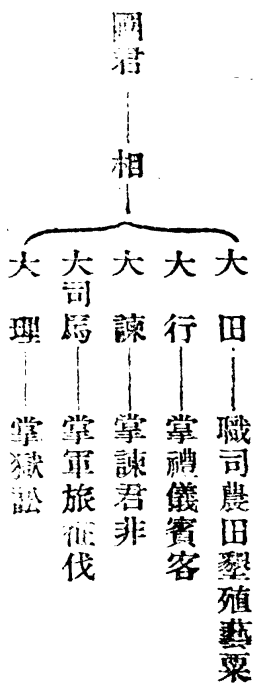 國君
相
大田 職司農田墾殖藝粟
大行 掌禮儀賓客
大諫 掌諫君非
大司馬 掌軍旅征伐
大理 掌獄訟